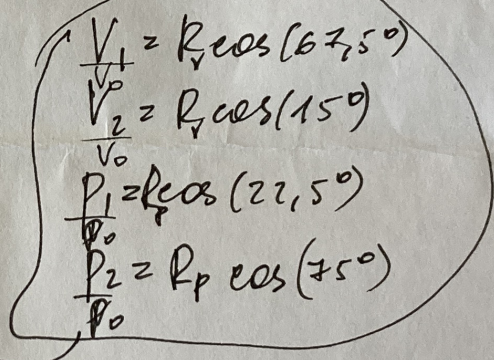 V₁/V₀ = Rᵥ cos(67,5°)
V₂/V₀ = Rᵥ cos(15°)
P₁/P₀ = Rₚ cos(22,5°)
P₂/P₀ = Rₚ cos(75°)